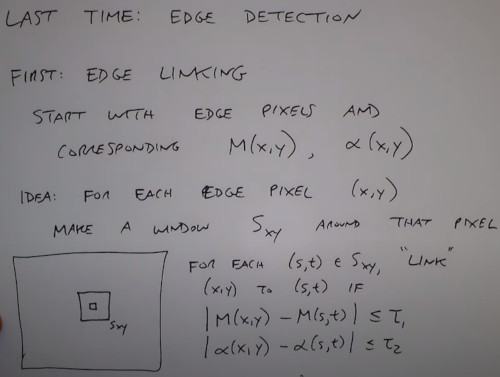 LAST TIME: EDGE DETECTION
FIRST: EDGE LINKING
START WITH EDGE PIXELS AND
CORRESPONDING M(x,y), α(x,y)
IDEA: FOR EACH EDGE PIXEL (x,y)
MAKE A WINDOW Sxy AROUND THAT PIXEL
FOR EACH (s,t) ∈ Sxy, "LINK"
(x,y) TO (s,t) IF
|M(x,y) - M(s,t)| ≤ τ1
|α(x,y) - α(s,t)| ≤ τ2
Sxy